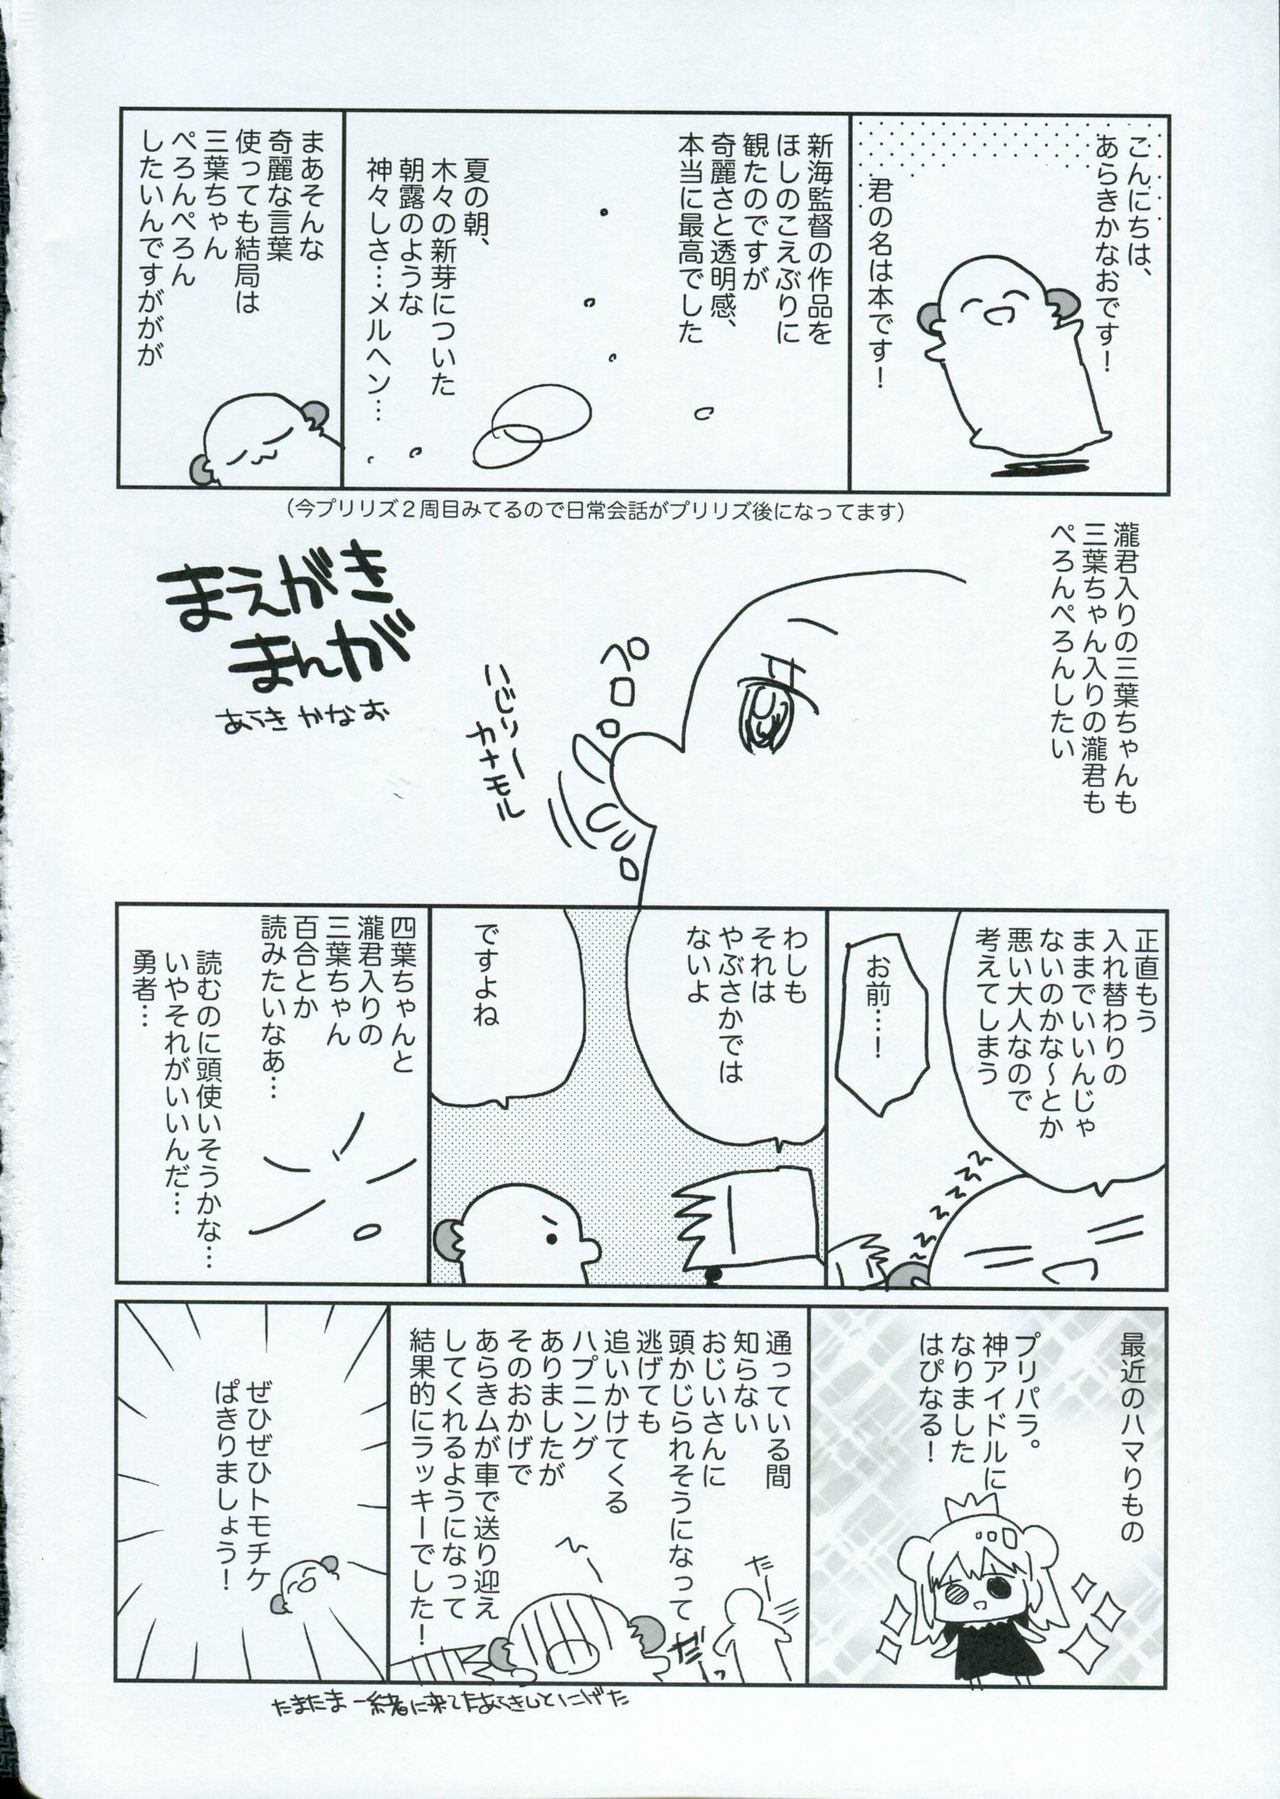 こんにちは、
あらきかなおです！
君の名は本です！
新海監督の作品を
ほしのこえぶりに
観たのですが
奇麗さと透明感、
本当に最高でした
夏の朝、
木々の新芽についた
朝露のような
神々しさ…メルヘン…
まあそんな
奇麗な言葉
使っても結局は
三葉ちゃん
ぺろんぺろん
したいんですががが
（今プリリズ２周目みてるので日常会話がプリリズ後になってます）
瀧君入りの三葉ちゃんも
三葉ちゃん入りの瀧君も
ぺろんぺろんしたい
ペロペロ
ハじリー
カナモル
まえがき
まんが
あらきかなお
正直もう
入れ替わりの
ままでいいんじゃ
ないのかな～とか
悪い大人なので
考えてしまう
お前…！
わしも
それは
やぶさかでは
ないよ
ですよね
四葉ちゃんと
瀧君入りの
三葉ちゃん
百合とか
読みたいなあ…
読むのに頭使いそうかな…
いやそれがいいんだ…
勇者…
最近のハマりもの
プリパラ。
神アイドルに
なりました
はぴなる！
通っている間
知らない
おじいさんに
頭かじられそうになって
逃げても
追いかけてくる
ハプニング
ありましたが
そのおかげで
あらきムが車で送り迎え
してくれるようになって
結果的にラッキーでした！
だー
だっ
たまたま一緒に来てたあらきしとにげた
ぜひぜひトモチケ
ぱきりましょう！